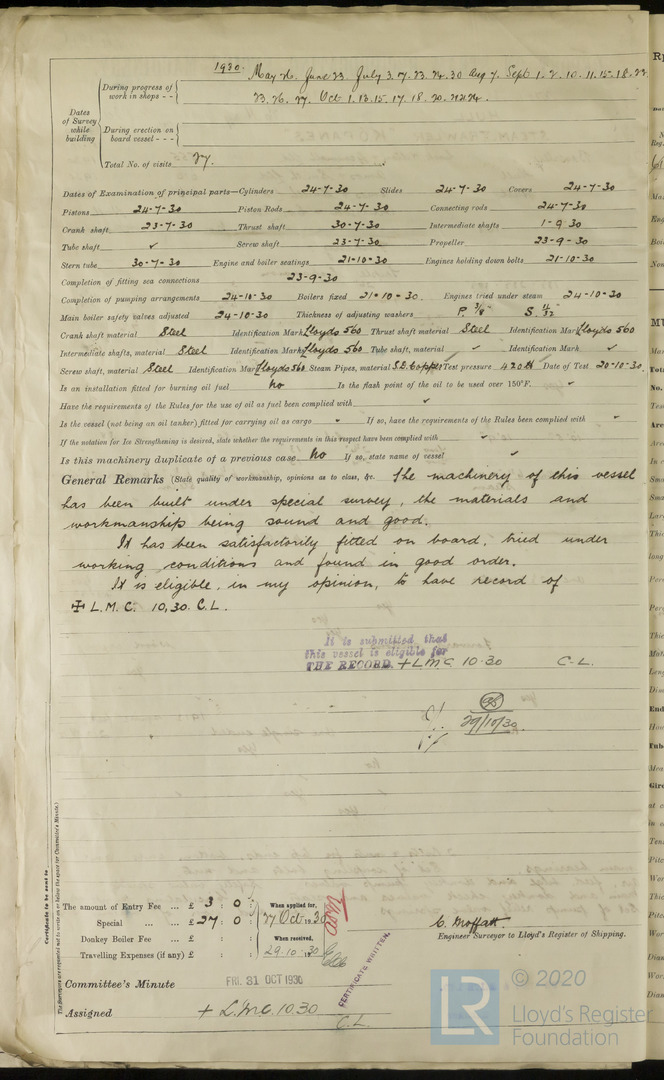 1930. May 26. June 23. July 3. 17. 23. 24. 30 Aug 7. Sept 1. 2. 10. 11. 15. 18. 22.
During progress of work in shops - -
23. 26. 27. Oct 1. 13. 15. 17. 18. 20.
Dates of Survey while building
During erection on board vessel - - -
Total No. of visits 27.
Dates of Examination of principal parts—Cylinders 24-7-30 Slides 24-7-30 Covers 24-7-30
Pistons 24-7-30 Piston Rods 24-7-30 Connecting rods 24-7-30
Crank shaft 23-7-30 Thrust shaft 30-7-30 Intermediate shafts 1-9-30
Tube shaft ✓ Screw shaft 23-7-30 Propeller 23-9-30
Stern tube 30-7-30 Engine and boiler seatings 21-10-30 Engines holding down bolts 21-10-30
Completion of fitting sea connections 23-9-30
Completion of pumping arrangements 24-10-30 Boilers fixed 21-10-30. Engines tried under steam 24-10-30
Main boiler safety valves adjusted 24-10-30 Thickness of adjusting washers P. 3/8" S. 11/32
Crank shaft material Steel Identification Mark Lloyds 560 Thrust shaft material Steel Identification Mark Lloyds 560
Intermediate shafts, material Steel Identification Marks Lloyds 560 Tube shaft, material ✓ Identification Mark ✓
Screw shaft, material Steel Identification Mark Lloyds 560 Steam Pipes, material S.D. Copper Test pressure 420 lb Date of Test 20-10-30.
Is an installation fitted for burning oil fuel No Is the flash point of the oil to be used over 150°F. ✓
Have the requirements of the Rules for the use of oil as fuel been complied with ✓
Is the vessel (not being an oil tanker) fitted for carrying oil as cargo If so, have the requirements of the Rules been complied with ✓
If the notation for Ice Strengthening is desired, state whether the requirements in this respect have been complied with ✓
Is this machinery duplicate of a previous case No If so, state name of vessel ✓
General Remarks (State quality of workmanship, opinions as to class, &c. The machinery of this vessel
has been built under special survey, the materials and
workmanship being sound and good.
It has been satisfactorily fitted on board, tried under
working conditions and found in good order.
It is eligible, in my opinion, to have record of
✠ L.M.C. 10,30. C.L.
It is submitted that
this vessel is eligible for
THE RECORD. + L.M.C. 10.30 C.L.
29/10/30.
Certificate to be sent to
The Surveyors are requested not to write on or below the space for Committee's Minute.
The amount of Entry Fee ... £ 3 : 0 :
Special ... ... £ 27 : 0 :
Donkey Boiler Fee ... £ : :
Travelling Expenses (if any) £ : :
When applied for,
27 Oct 1930
When received,
29.10.1930
CERTIFICATE WRITTEN.
C. Moffatt
Engineer Surveyor to Lloyd's Register of Shipping.
Committee's Minute FRI. 31 OCT 1930
Assigned + L.M.C. 10.30
C.L.
LR
© 2020
Lloyd's Register
Foundation